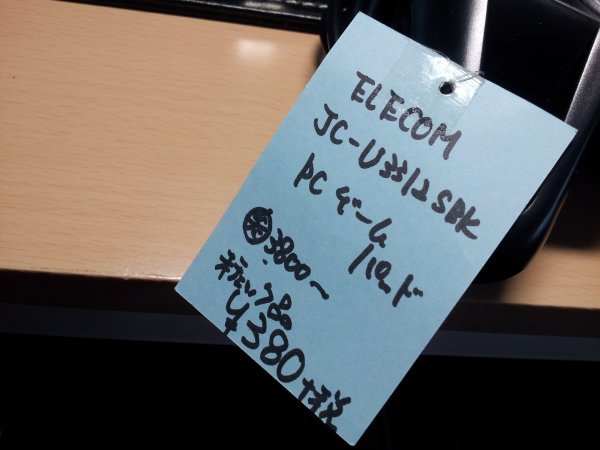 ELECOM
JC-U3312SBK
PCゲーム
パッド
3800〜
未チェック品
¥380+税